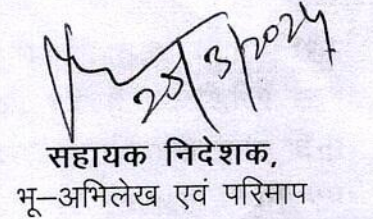 20/3/2024
सहायक निदेशक,
भू–अभिलेख एवं परिमाप